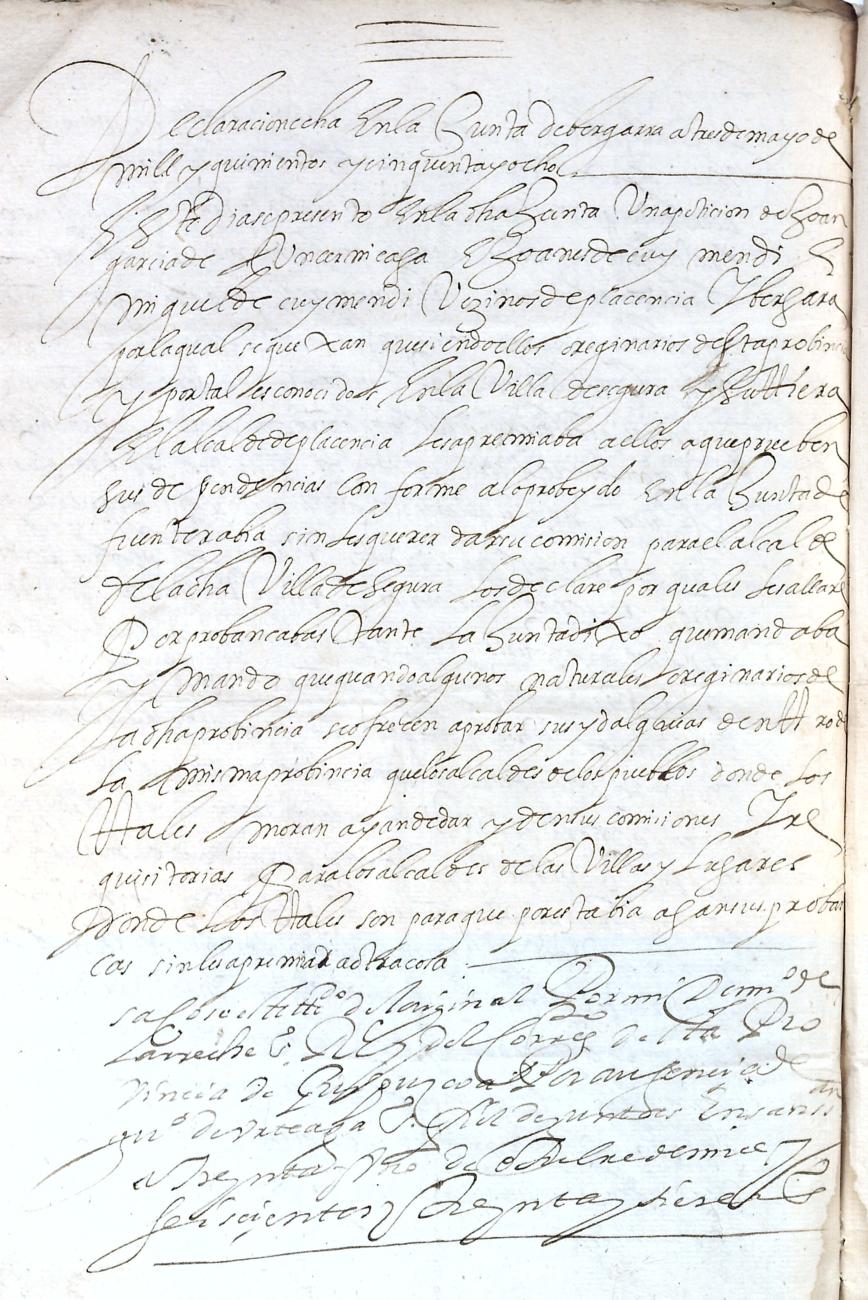 Declaracion echa En la Junta de bergara a tres de mayo de
mill y quinientos y cinquenta y ocho
Este dia se presento En la dha Junta Una peticion de Joan
garcia de E Joanes de euymendi E
miguel de euymendi Vezinos de placencia Y bergara
por la qual se quexan que siendo ellos oreginarios desta probincia
y por tal es conocidos En la Villa de segura y su ttierra
El alcalde de placencia les apremiaba a ellos a que prueben
sus dependencias Conforme a lo probeydo En la Junta de
fuenterabia sin les querer dar su comision para el alcalde
de la dha Villa de Segura los declare por quales les allare
Por probanca bastante La Junta dixo que mandaba
y mando que quando algunos naturales oreginarios de
La dha probincia se ofrecen a probar sus ydalguias denttro de
La misma probincia que los alcaldes de los pueblos donde los
ttales moran ayan de dar y den sus comisiones Y re
quisitorias Para los alcaldes de las Villas y Lugares
donde los ttales son para que por esta bia agan sus proban
cas sin les apremiar a otra cosa
saco se este tt.º del original Por mi Domº de
Larreche del Correg.º desta Pro
vincia de Guipuzcoa Por ausencia de
de Urteaga fiel de Juntas En san ss
a treynta y de de mil y
seiscientos y treynta y siete